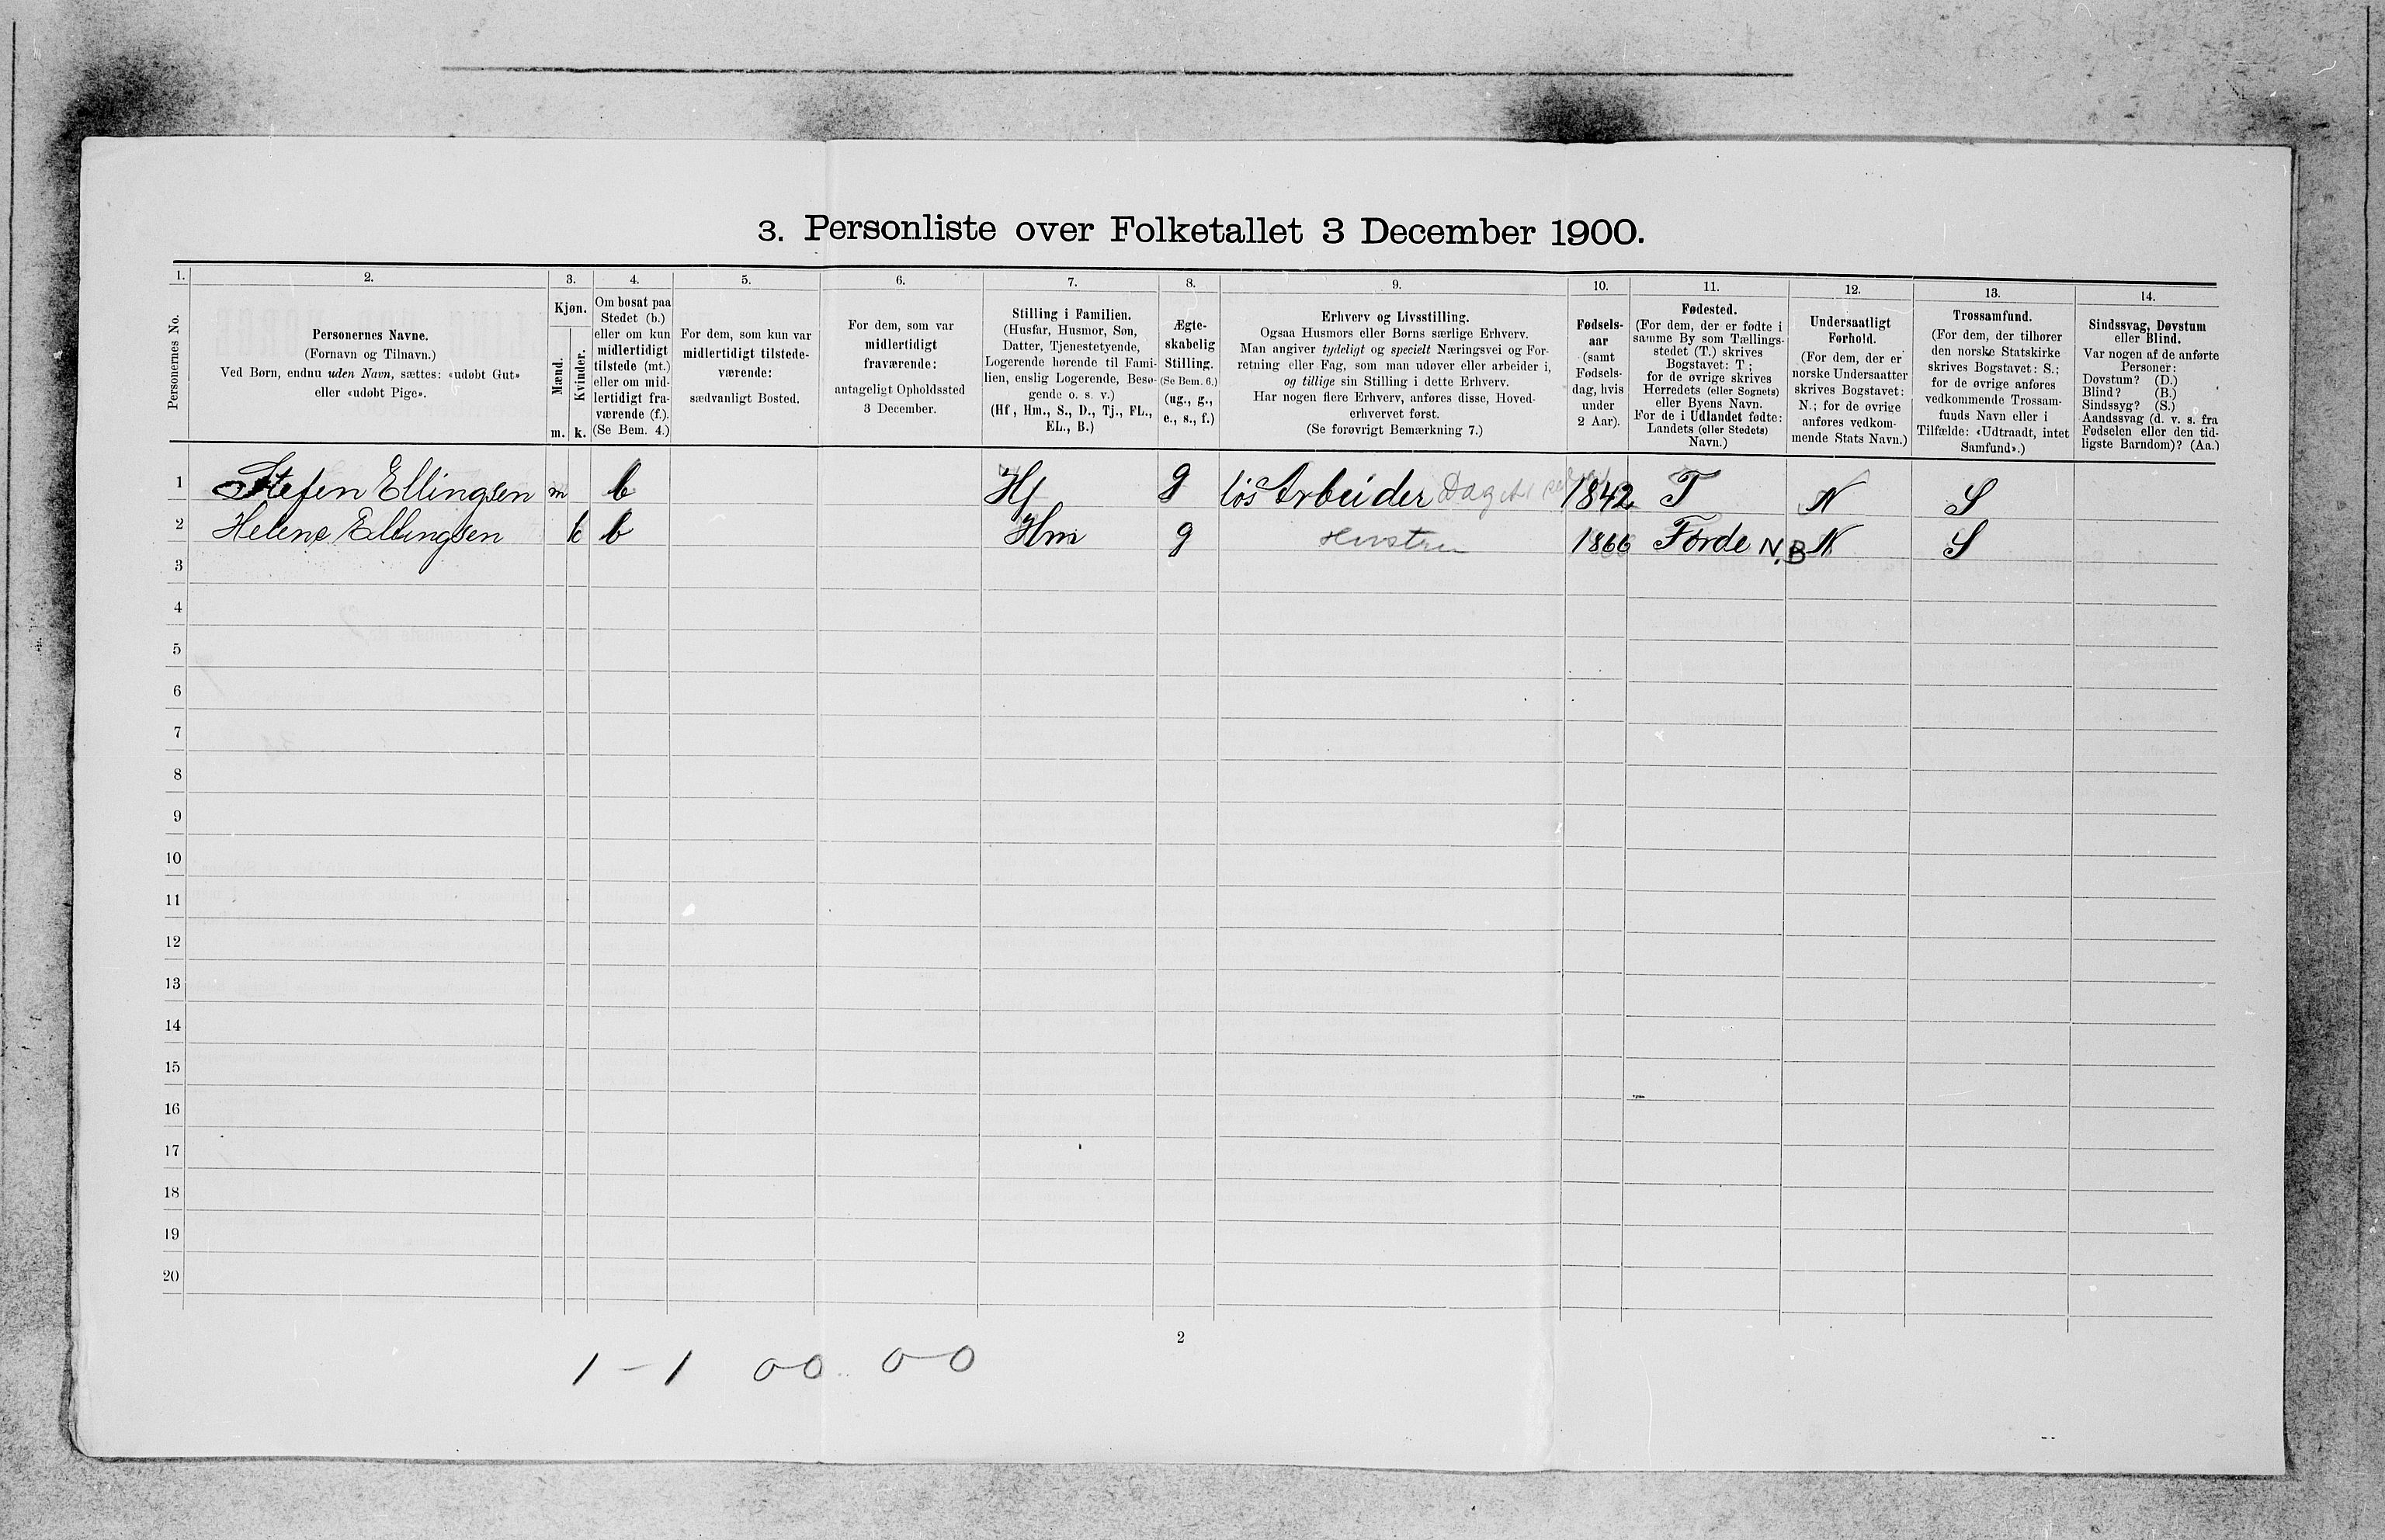 3. Personliste over Folketallet 3 December 1900.
1. 2. 3. 4. 5. 6. 7. 8. 9. 10. 11. 12. 13. 14.
Personernes No.
Personernes Navne.
(Fornavn og Tilnavn.)
Ved Børn, endnu uden Navn, sættes: «udøbt Gut»
eller «udøbt Pige».
Kjøn.
Mænd.
Kvinder.
m. k.
Om bosat paa
Stedet (b.)
eller om kun
midlertidigt
tilstede (mt.)
eller om mid-
lertidigt fra-
værende (f.).
(Se Bem. 4.)
For dem, som kun var
midlertidigt tilstede-
værende:
sædvanligt Bosted.
For dem, som var
midlertidigt
fraværende:
antageligt Opholdssted
3 December.
Stilling i Familien.
(Husfar, Husmor, Søn,
Datter, Tjenestetyende,
Logerende hørende til Fami-
lien, enslig Logerende, Besø-
gende o. s. v.)
(Hf., Hm., S., D., Tj., FL.,
EL., B.)
Ægte-
skabelig
Stilling.
(Se Bem. 6.)
(ug., g.,
e., s., f.)
Erhverv og Livsstilling.
Ogsaa Husmors eller Børns særlige Erhverv.
Man angiver tydeligt og specielt Næringsvei og For-
retning eller Fag, som man udøver eller arbeider i,
og tillige sin Stilling i dette Erhverv.
Har nogen flere Erhverv, anføres disse, Hoved-
erhvervet først.
(Se forøvrigt Bemærkning 7.)
Fødsels-
aar
(samt
Fødsels-
dag, hvis
under
2 Aar).
Fødested.
(For dem, der er fødte i
samme By som Tællings-
stedet (T.) skrives
Bogstavet: T;
for de øvrige skrives
Herredets (eller Sognets)
eller Byens Navn.
For de i Udlandet fødte:
Landets (eller Stedets)
Navn.)
Undersaatligt
Forhold.
(For dem, der er
norske Undersaatter
skrives Bogstavet:
N.; for de øvrige
anføres vedkom-
mende Stats Navn.)
Trossamfund.
(For dem, der tilhører
den norske Statskirke
skrives Bogstavet: S.;
for de øvrige anføres
vedkommende Trossam-
funds Navn eller i
Tilfælde: «Udtraadt, intet
Samfund».)
Sindssvag, Døvstum
eller Blind.
Var nogen af de anførte
Personer:
Døvstum? (D.)
Blind? (B.)
Sindssyg? (S.)
Aandssvag (d. v. s. fra
Fødselen eller den tid-
ligste Barndom)? (Aa.)
1 Stefen Ellingsen m b Hf g løs Arbeider 1842 T N S
2 Helene Ellingsen k b Hm g Hustru 1866 Førde N.B N S
3
4
5
6
7
8
9
10
11
12
13
14
15
16
17
18
19
20
2
1 - 1 0-0 0-0